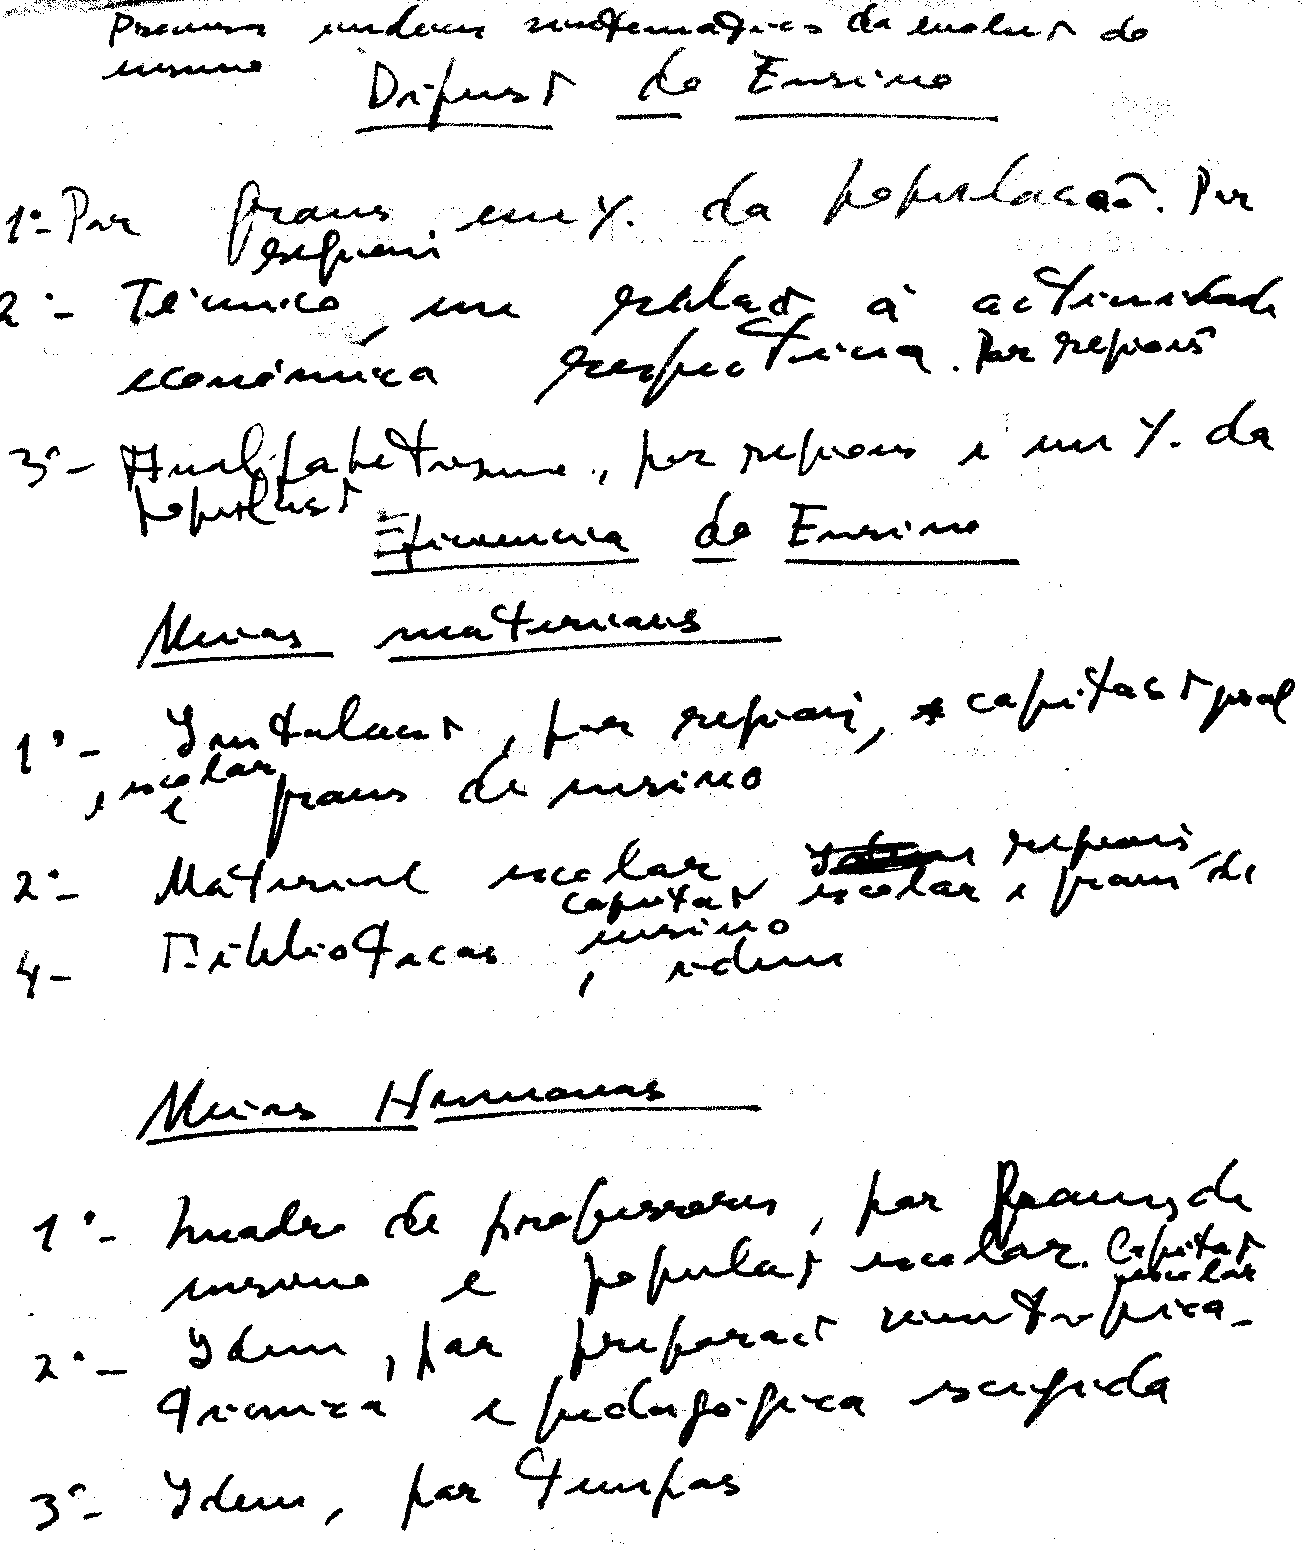 Procurar índices matemáticos da evolução do
ensino
Difusão do Ensino
1º- Por graus em %. da população. Por
regiões
2º- Técnico, em relação à actividade
económica respectiva. Por regiões
3º- Analfabetismo, por regiões e em %. da
população
Eficiencia do Ensino
Meios materiais
1º- Instalação, por regiões, capitação geral
e escolar
e graus de ensino
2º- Material escolar, regiões,
capitação escolar e graus de
ensino
4- Bibliotecas, idem
Meios Humanos
1º- Quadro de professores, por graus de
ensino e população escolar. Capitação
escolar
2º- Idem, por preparação cientifica-
tecnica e pedagógica exigida
3º- Idem, por tempos